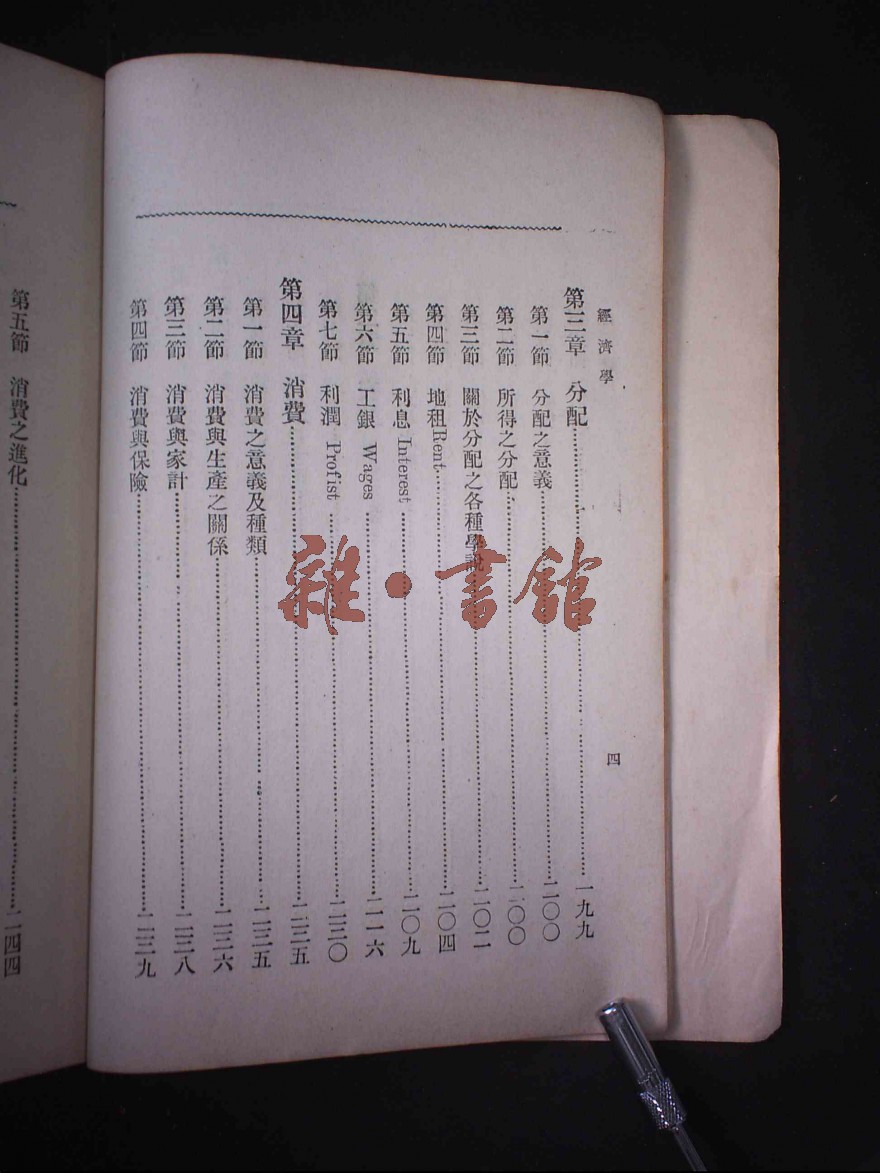 經濟學
四
第三章 分配……一九九
第一節 分配之意義……二〇〇
第二節 所得之分配……二〇〇
第三節 關於分配之各種學說……二〇二
第四節 地租Rent……二〇四
第五節 利息Interest……二〇九
第六節 工銀 Wages……二一六
第七節 利潤 Profist……二三〇
第四章 消費……二三五
第一節 消費之意義及種類……二三五
第二節 消費與生產之關係……二三六
第三節 消費與家計……二三八
第四節 消費與保險……二三九
第五節 消費之進化……二四四
雜·書館